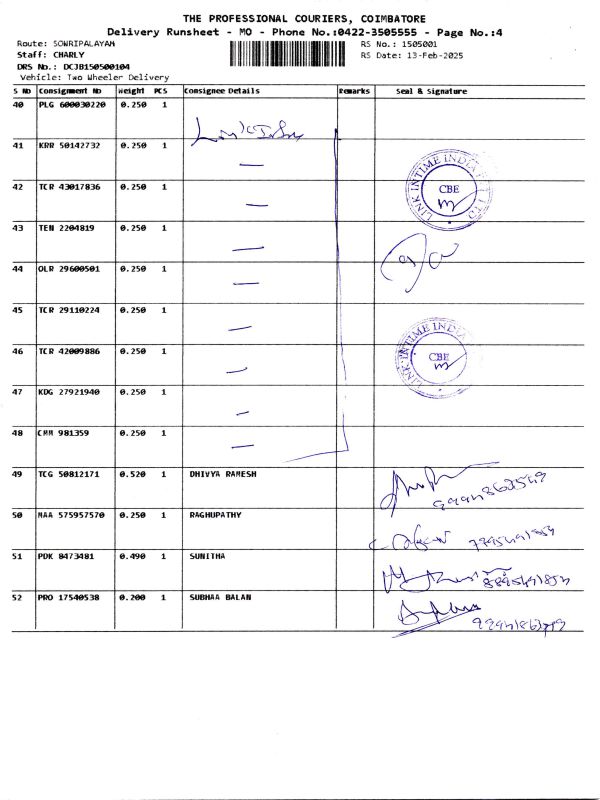 THE PROFESSIONAL COURIERS, COIMBATORE
Delivery Runsheet - MO - Phone No.:0422-3505555 - Page No.:4
Route: SOWRIPALAYAM
RS No.: 1505001
Staff: CHARLY
RS Date: 13-Feb-2025
DRS No.: DCJB150500104
Vehicle: Two Wheeler Delivery
S No Consignment No Weight PCS Consignee Details Remarks Seal & Signature
40 PLG 600030220 0.250 1
41 KRR 50142732 0.250 1
42 TCR 43017836 0.250 1
LINK INTIME INDIA
CBE
43 TEN 2204819 0.250 1
44 OLR 29600501 0.250 1
45 TCR 29110224 0.250 1
46 TCR 42009886 0.250 1
LINK INTIME INDIA
CBE
47 KDG 27921940 0.250 1
48 CMM 981359 0.250 1
49 TCG 50812171 0.520 1 DHIVYA RAMESH
50 MAA 575957570 0.250 1 RAGHUPATHY
51 PDK 8473481 0.490 1 SUNITHA
52 PRO 17540538 0.200 1 SUBHAA BALAN